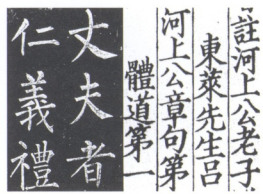 註河上公老子
東萊先生呂
河上公章句第
體道第一
丈夫者
仁義禮